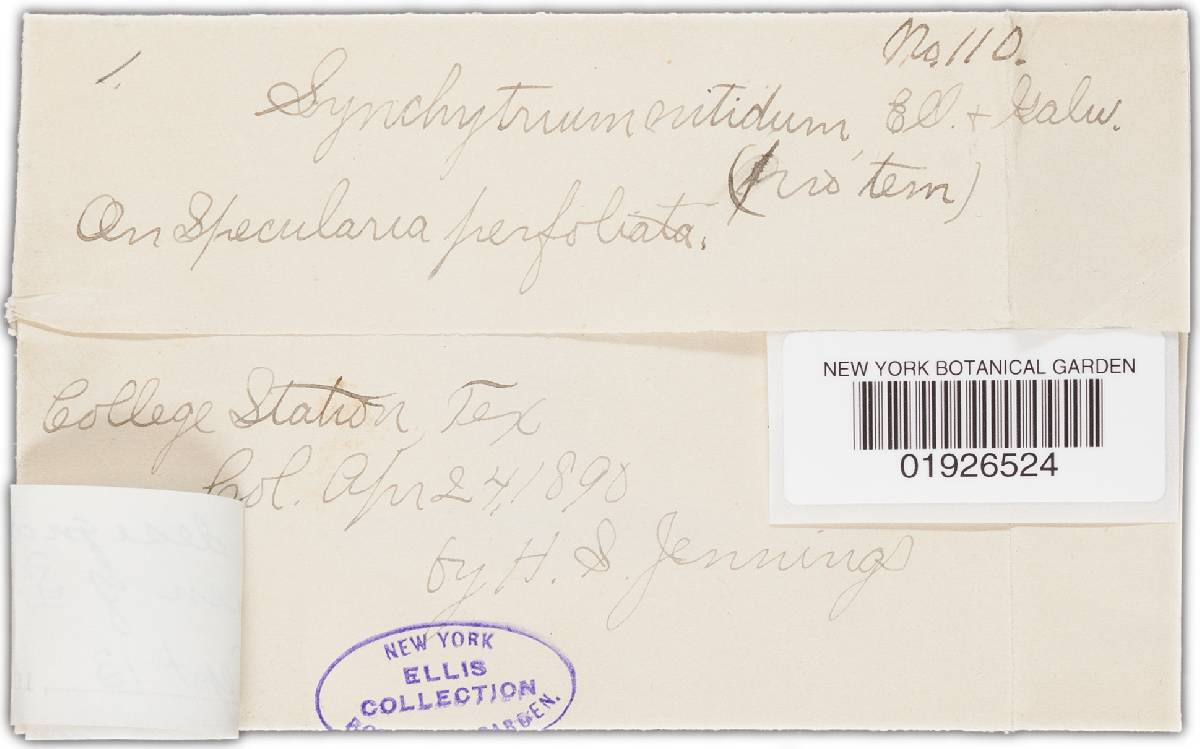 No. 110.
1.
Synchytrium nitidum, Ell. + Galw.
(Pro tem)
On Specularia perfoliata.
NEW YORK BOTANICAL GARDEN
01926524
College Station, Tex
Col. Apr 24, 1890
by H. S. Jennings
NEW YORK
ELLIS
COLLECTION